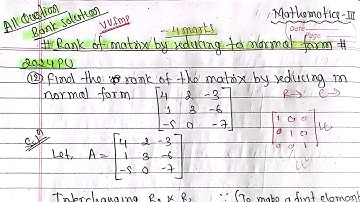 All Question
Rank solution
VVImp
4 marks
Mathematics-II
Date
Page
# Rank of matrix by reducing to normal form #
2024 PU
Find the rank of the matrix by reducing in
normal form [4 2 -3
1 3 -6
-5 0 -7]
R→ C→
[1 0 0
0 1 0
0 0 1]
Let, A = [4 2 -3
1 3 -6
-5 0 -7]
Interchanging R₁ & R₂ ∵ (To make a first element